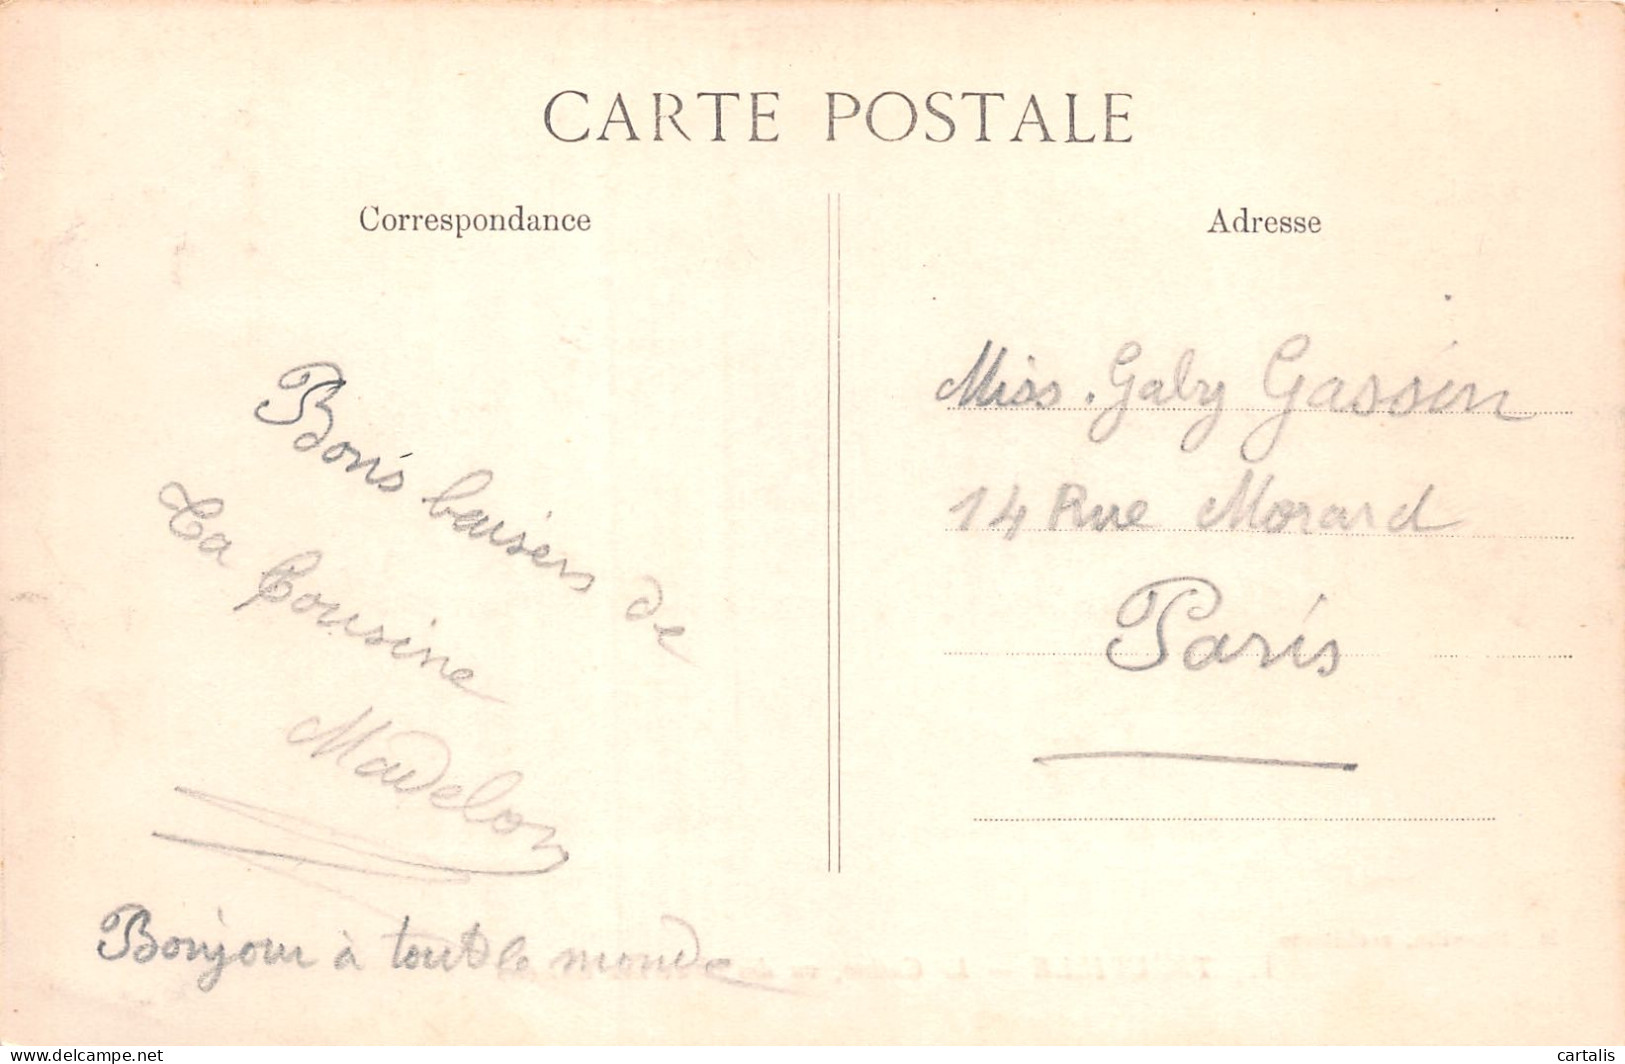 CARTE POSTALE
Correspondance
Bons baisers de
Ta Cousine
Madelon
Bonjour à tout le monde
Adresse
Miss. Gaby Gassin
14 Rue Morard
Paris
delcampe.net
cartalis